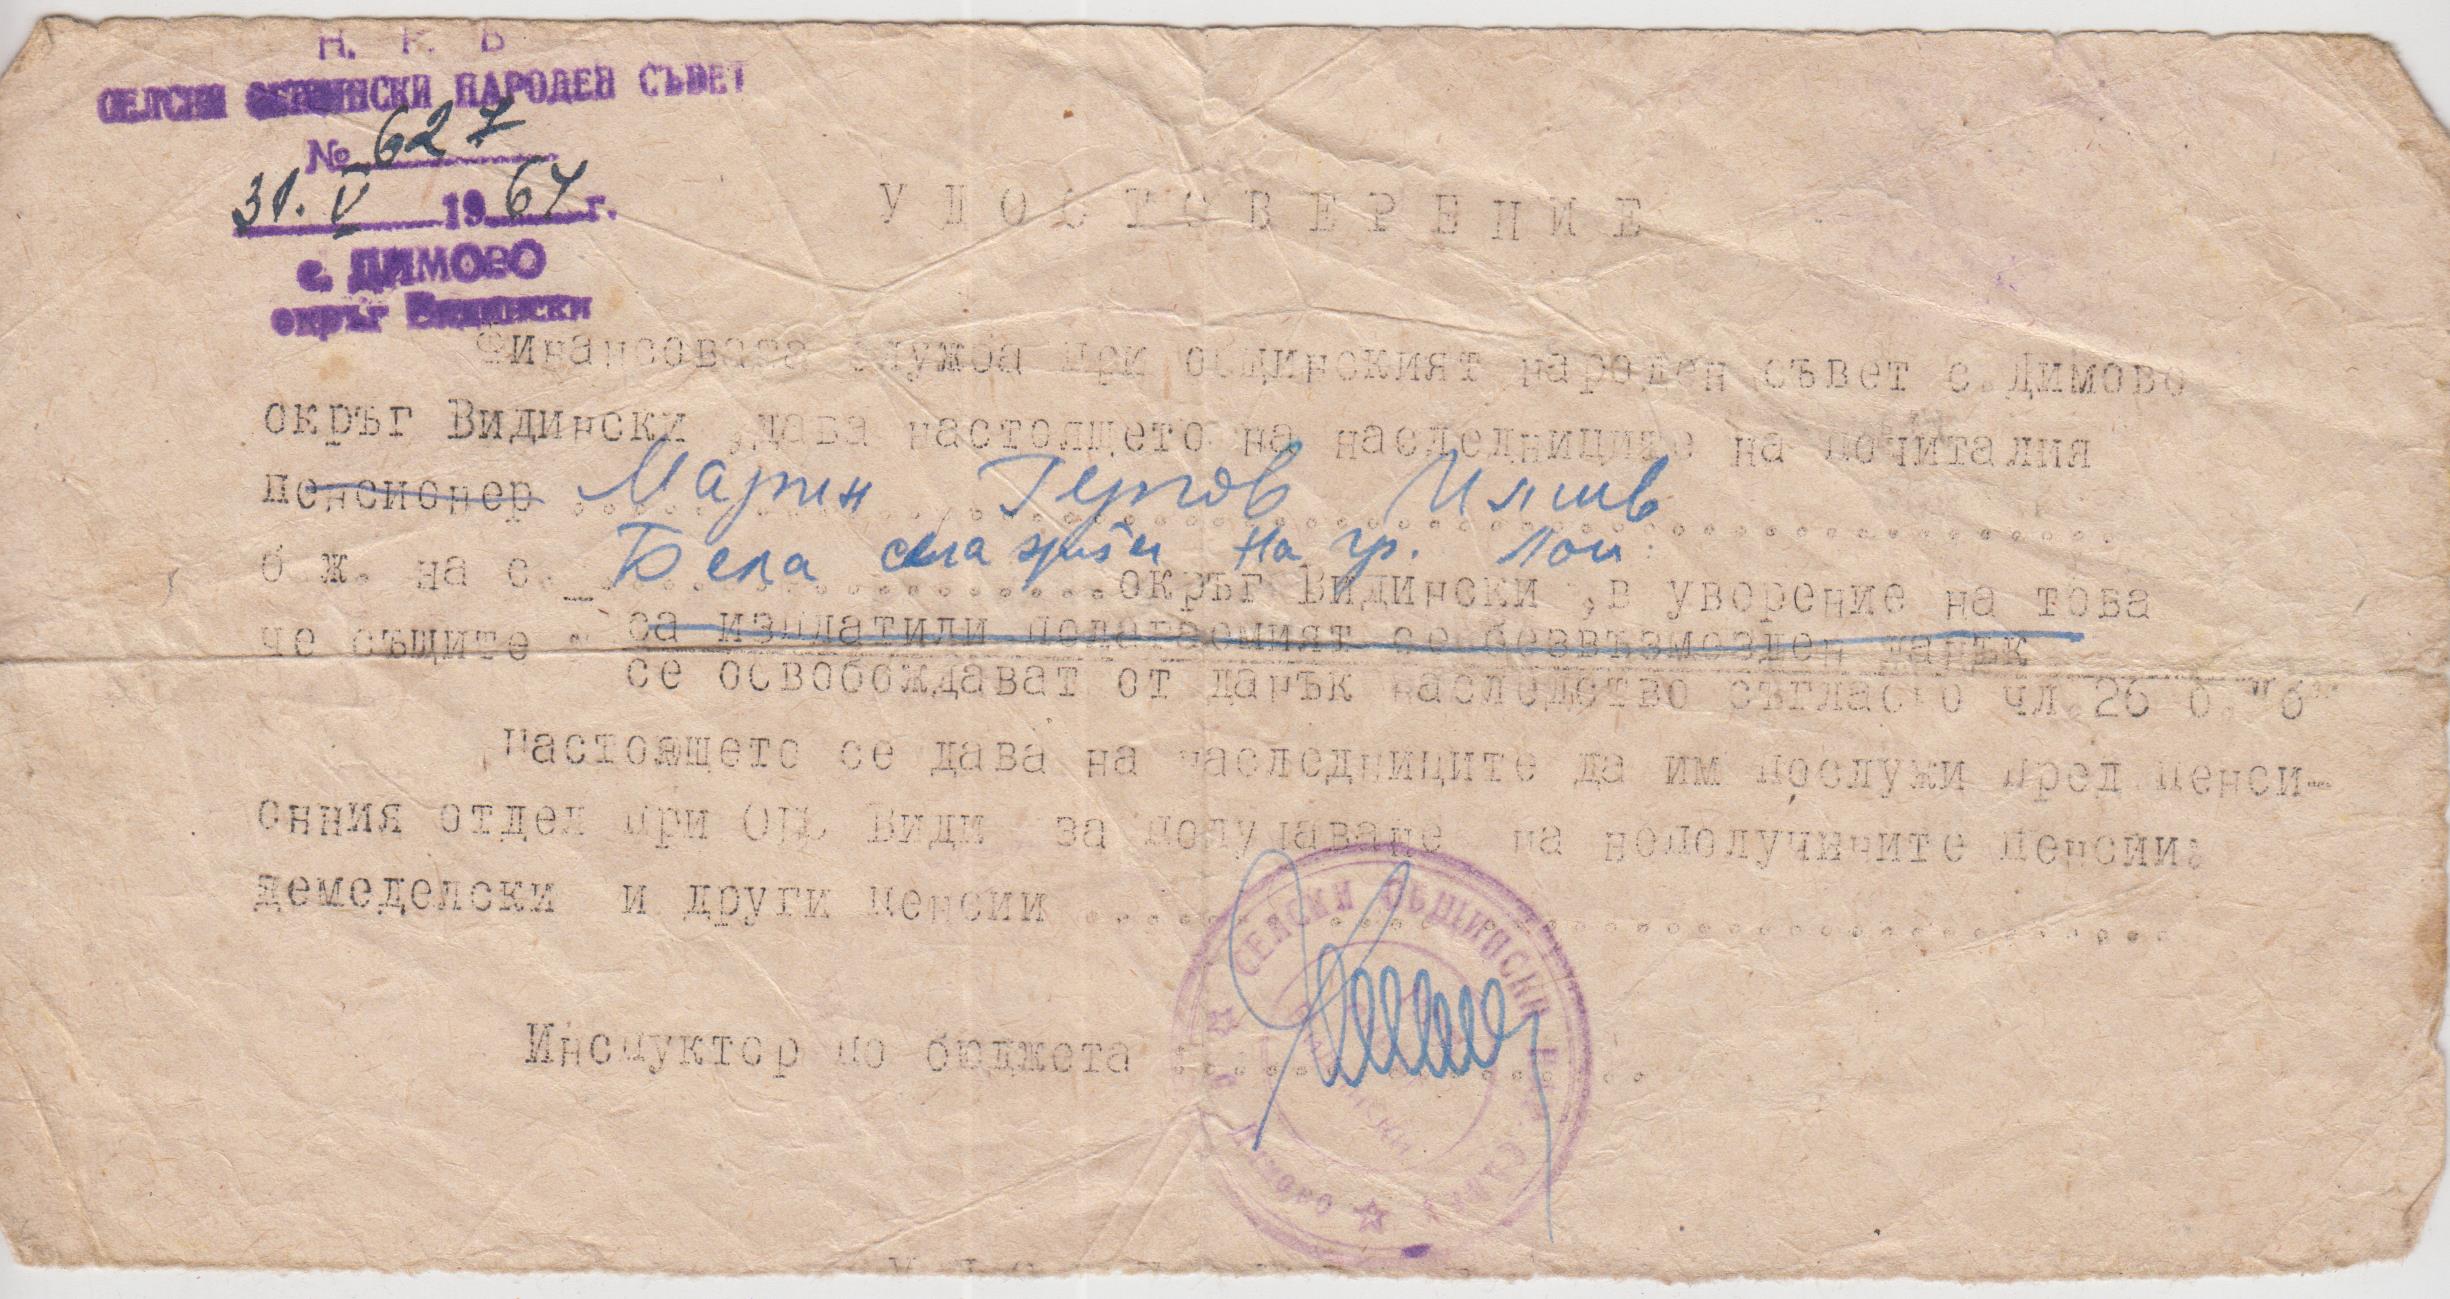 Н. Р. Б
СЕЛСКИ ОБЩИНСКИ НАРОДЕН СЪВЕТ
№ 627
31. V 1964 г.
с. ДИМОВО
окръг Видински
УДОСТОВЕРЕНИЕ
Финансовата служба при общинският народен съвет с. Димово
окръг Видински ,дава настоящето на наследниците на почиталия
пенсионер Марин Гергов
б ж. на с. Бела на гр. Лом окръг Видински ,в уверение на това
че същите : са изплатили полагаемият се безвъзмезден данък
се освобождават от данък наследство съгласно чл.26 б."б"
Настоящето се дава на наследниците да им послужи пред пенси-
онния отдел при Види за получаване на нополучените пенсии:
демеделски и други пенсии
Инспуктор по бюджета :
СЕЛСКИ ОБЩИНСКИ